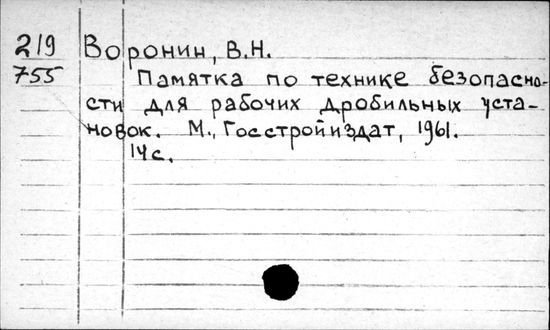 219 Воронин, В.Н.
755 Памятка по технике безопасно-
сти для рабочих дробильных уста-
новок. М., Госстройиздат, 1961.
14с.